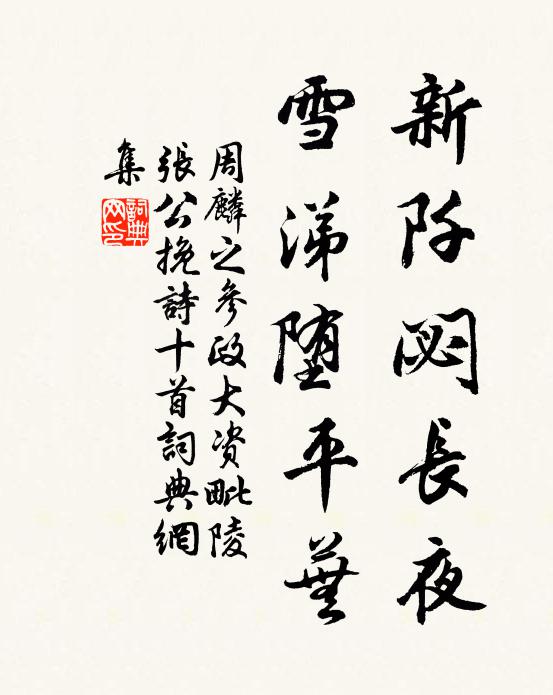 新阡閟長夜
雪涕墮平蕪
周麟之參政大資毗陵
張公挽詩十首詞典網
集
詞典
网印